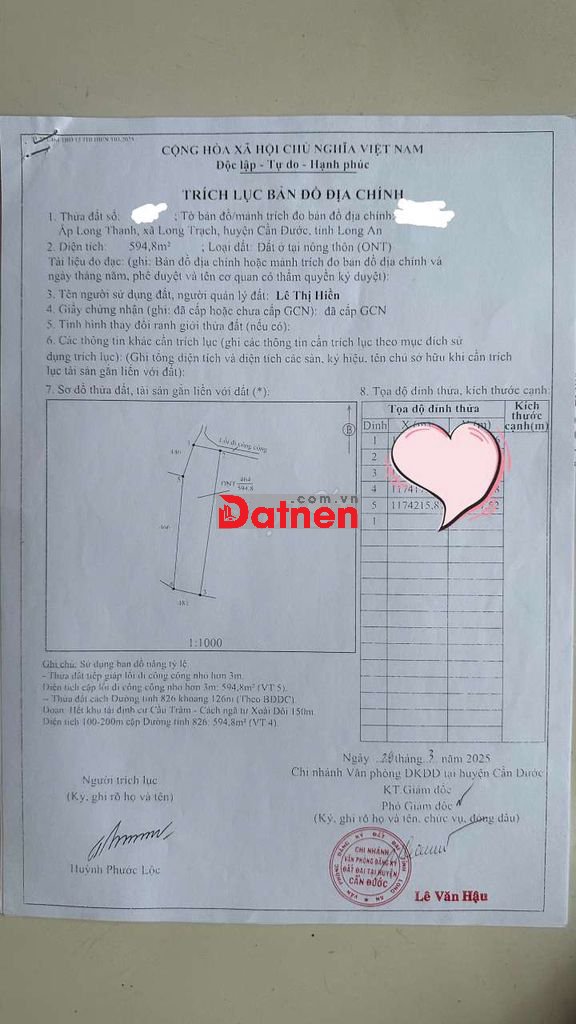 CỘNG HÒA XÃ HỘI CHỦ NGHĨA VIỆT NAM
Độc lập - Tự do - Hạnh phúc
TRÍCH LỤC BẢN ĐỒ ĐỊA CHÍNH
1. Thửa đất số: ; Tờ bản đồ/mảnh trích đo bản đồ địa chính
Ấp Long Thanh, xã Long Trạch, huyện Cần Đước, tỉnh Long An
2. Diện tích: 594,8m² ; Loại đất: Đất ở tại nông thôn (ONT)
Tài liệu đo đạc: (ghi: Bản đồ địa chính hoặc mảnh trích đo bản đồ địa chính và
ngày tháng năm, phê duyệt và tên cơ quan có thẩm quyền ký duyệt):
3. Tên người sử dụng đất, người quản lý đất: Lê Thị Hiền
4. Giấy chứng nhận (ghi: đã cấp hoặc chưa cấp GCN): đã cấp GCN
5. Tình hình thay đổi ranh giới thửa đất (nếu có):
6. Các thông tin khác cần trích lục (ghi các thông tin cần trích lục theo mục đích sử
dụng trích lục): (Ghi tổng diện tích và diện tích các sàn, ký hiệu, tên chủ sở hữu khi cần trích
lục tài sản gắn liền với đất):
7. Sơ đồ thửa đất, tài sản gắn liền với đất (*):
8. Tọa độ đỉnh thửa, kích thước cạnh:
Tọa độ đỉnh thửa
Kích thước cạnh(m)
Đỉnh
1
2
3
4 11741
5 1174215.8 .52
1
B
Lối đi công cộng
446
5
ONT 464
594.8
466
3
481
Datnen
.com.vn
1:1000
Ghi chú: Sử dụng bản đồ nâng tỷ lệ.
- Thửa đất tiếp giáp lối đi công cộng nhỏ hơn 3m.
Diện tích cập lối đi công cộng nhỏ hơn 3m: 594,8m² (VT 5).
- Thửa đất cách Đường tỉnh 826 khoảng 126m (Theo BĐDC).
Đoạn: Hết khu tái định cư Cầu Tràm - Cách ngã tư Xoài Đôi 150m.
Diện tích 100-200m cặp Đường tỉnh 826: 594,8m² (VT 4).
Ngày 20 tháng 3 năm 2025
Chi nhánh Văn phòng ĐKĐĐ tại huyện Cần Đước
Người trích lục
(Ký, ghi rõ họ và tên)
KT.Giám đốc
Phó Giám đốc
(Ký, ghi rõ họ và tên, chức vụ, đóng dấu)
Huỳnh Phước Lộc
CHI NHÁNH
VĂN PHÒNG ĐĂNG KÝ
ĐẤT ĐAI TẠI HUYỆN
CẦN ĐƯỚC
Lê Văn Hậu